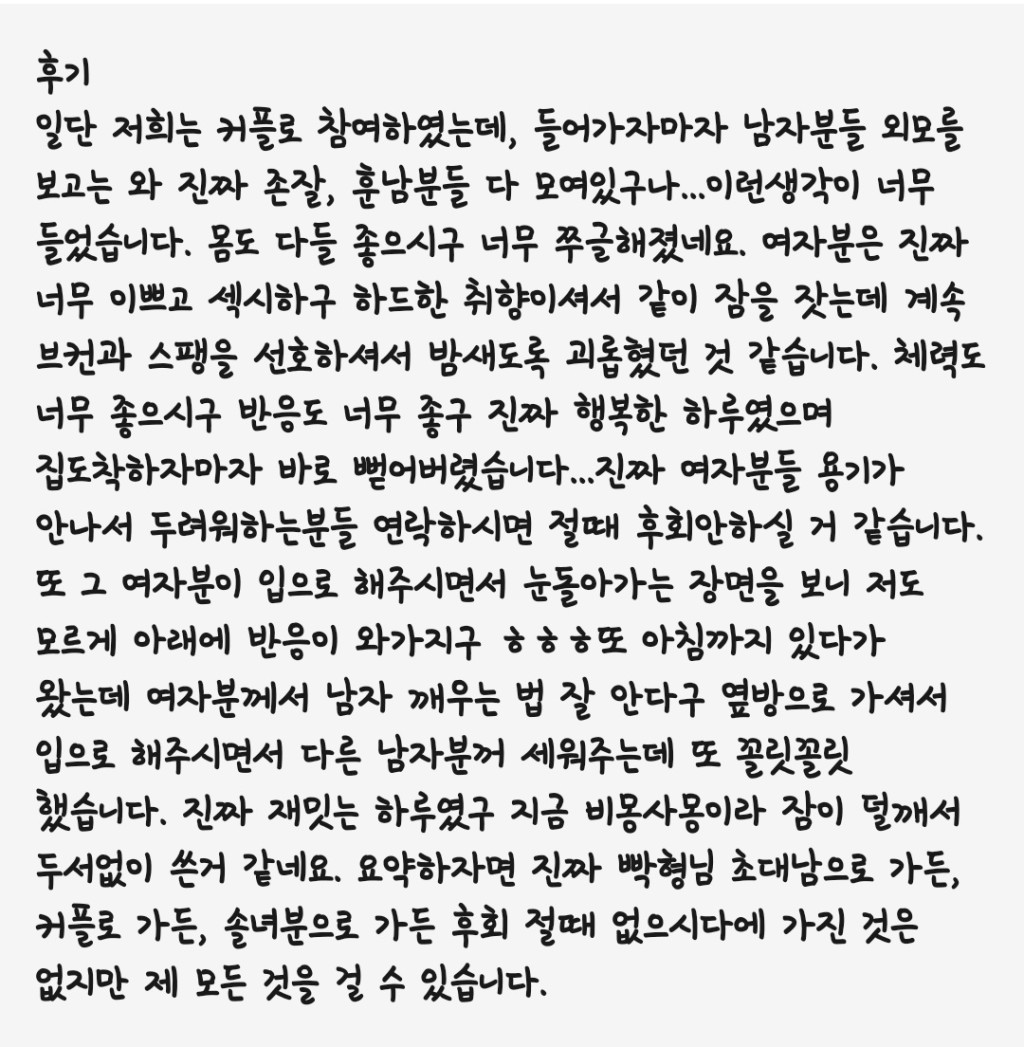 후기
일단 저희는 커플로 참여하였는데, 들어가자마자 남자분들 외모를
보고는 와 진짜 존잘, 훈남분들 다 모여있구나...이런생각이 너무
들었습니다. 몸도 다들 좋으시구 너무 쭈글해졌네요. 여자분은 진짜
너무 이쁘고 섹시하구 하드한 취향이셔서 같이 잠을 잣는데 계속
브컨과 스팽을 선호하셔서 밤새도록 괴롭혔던 것 같습니다. 체력도
너무 좋으시구 반응도 너무 좋구 진짜 행복한 하루였으며
집도착하자마자 바로 뻗어버렸습니다...진짜 여자분들 용기가
안나서 두려워하는분들 연락하시면 절때 후회안하실 거 같습니다.
또 그 여자분이 입으로 해주시면서 눈돌아가는 장면을 보니 저도
모르게 아래에 반응이 와가지구 ㅎㅎㅎ또 아침까지 있다가
왔는데 여자분께서 남자 깨우는 법 잘 안다구 옆방으로 가셔서
입으로 해주시면서 다른 남자분꺼 세워주는데 또 꼴릿꼴릿
했습니다. 진짜 재밋는 하루였구 지금 비몽사몽이라 잠이 덜깨서
두서없이 쓴거 같네요. 요약하자면 진짜 빡형님 초대남으로 가든,
커플로 가든, 솔녀분으로 가든 후회 절때 없으시다에 가진 것은
없지만 제 모든 것을 걸 수 있습니다.